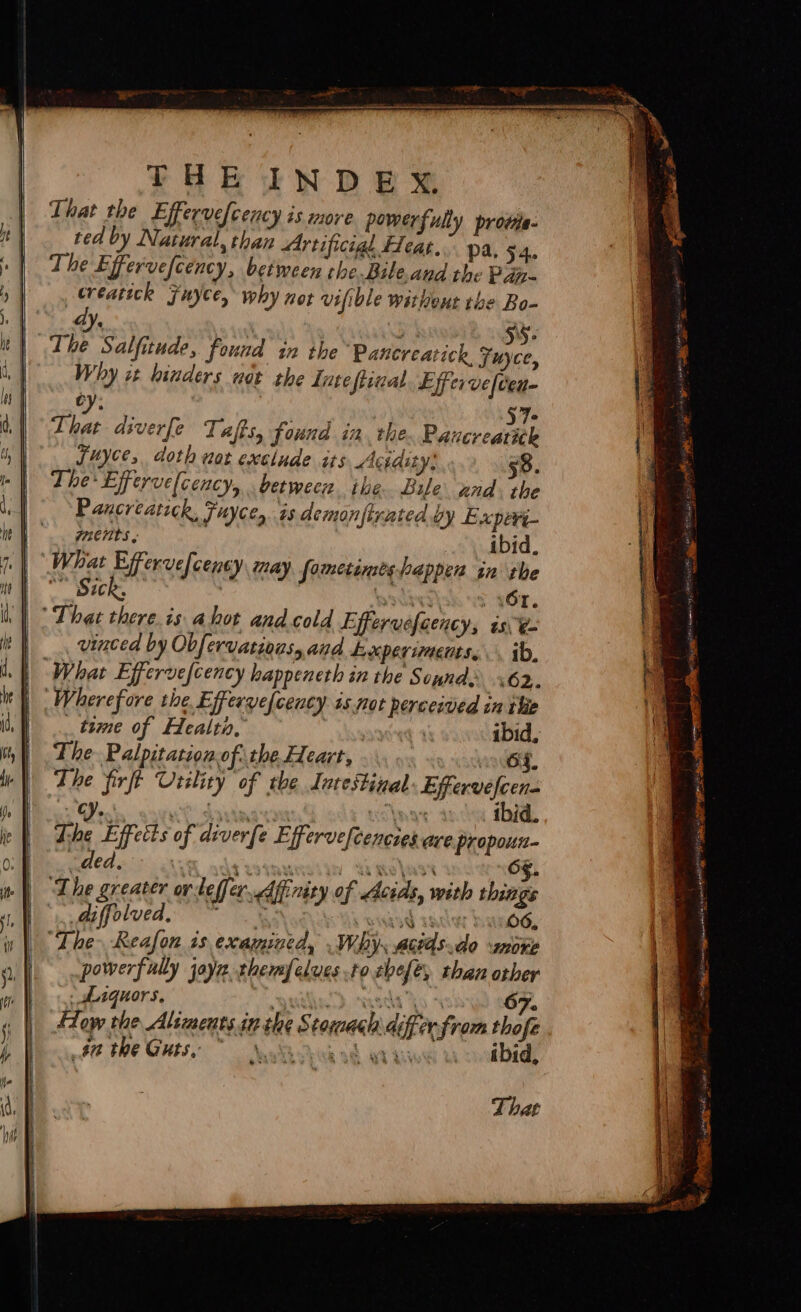 THE INDEX.
That the Efferveſcency is more powerfully promo-
ted by Natural, than Artificial Heat. pa. 54.
The Efferveſcency, between the Bile and the Pan-
creatick Juyce, why not viſible without the Bo-
dy. 55.
The Salſitude, found in the Pancreatick Juyce,
Why it hinders not the Inteſtinal Efferveſcen-
cy. 57.
That diverſe Taſts, found in the Pancreatick
Juyce, doth not exclude its Acidity. 58.
The Efferveſcency, between the Bile and the
Pancreatick Juyce, is demonſtrated by Experi-
ments. ibid.
What Efferveſcency may ſometimes happen in the
Sick. 61.
That there is a hot and cold Efferveſcency, is e-
vinced by Obſervations, and Experiments. ib.
What Efferveſcency happeneth in the Sound. 62.
Wherefore the Efferveſcency is not perceived in the
time of Health. ibid.
The Palpitation of the Heart, 63.
The firſt Utility of the Inteſtinal Efferveſcen-
cy. ibid.
The Effects of diverſe Efferveſcencies are propoun-
ded. 65.
The greater or leſſer Affinity of Acids, with things
diſſolved. 66.
The Reaſon is examined, Why acids do more
powerfully joyn themſelves to theſe, than other
Liquors. 67.
How the Aliments in the Stomach differ from thoſe
in the Guts. ibid.
That